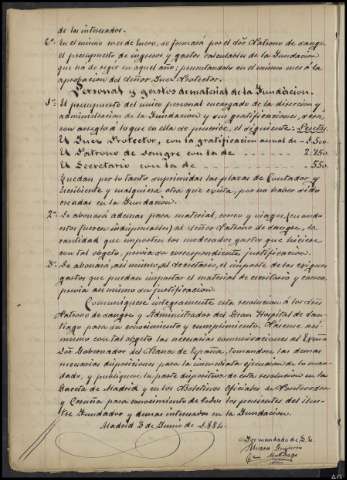 de los interesados.
6ª En el mismo mes de Enero, se formará por el dho Patrono de sangre
el presupuesto de ingresos y gastos calculables de la Fundacion
que ha de regir en aquel año; presentandolo en el mismo mes á la
aprobacion del Señor Juez Protector.
Personal y gastos de material de la Fundacion.
1ª El presupuesto del unico personal encargado de la direccion y
administracion de la Fundacion y sus gratificaciones, será
con arreglo á lo que en ella se previene, el siguiente: Pesetas
El Juez Protector, con la gratificacion anual de
El Patrono de Sangre con la de
El Secretario con la de 550.
Quedan por lo tanto suprimidas las plazas de Contador y
Escribiente y cualquiera otra que exista, por no haber sido
creadas en la Fundacion.
2ª Se abonará ademas para material, correo y viages (cuando
estos fueren indispensables) al Señor Patrono de sangre, la
cantidad que importen los moderados gastos que hiciese
con tal objeto, prévia su correspondiente justificacion.
3ª Se abonará asi mismo al Secretario, el importe de los exiguos
gastos que puedan importar el material de escritorio y correo,
prévia asi mismo su justificacion.
Comuníquese integramente esta resolucion á los dhos
Patrono de sangre y Administrador del Gran Hospital de San-
tiago para su conocimiento y cumplimiento. Haganse asi
mismo con tal objeto las necesarias comunicaciones al
Gobernador del Banco de España, tomandose las demas
necesarias disposiciones para la inmediata ejecucion de lo man-
dado, y publiquese la parte dispositiva de esta resolucion en la
Gaceta de Madrid y en los Boletines Oficiales de Pontevedra
y Coruña para conocimiento de todos los parientes del ilus-
tre Fundador y demas interesados en la Fundacion.
Madrid 3 de Junio de 1884.
Por mandado de S.S.